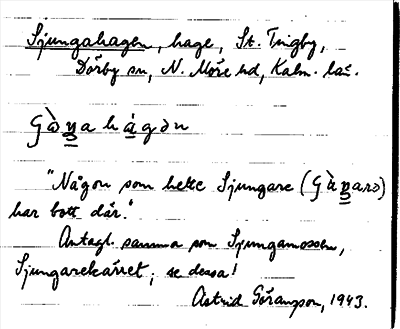 Sjungahagen, hage, St. Tingby,
Dörby sn, N. Möre hd, Kalm. län.
"Någon som hette Sjungare
har bott där."
Antagl. samma som Sjungamossen,
Sjungarekärret; se dessa!
Astrid Göransson, 1943.